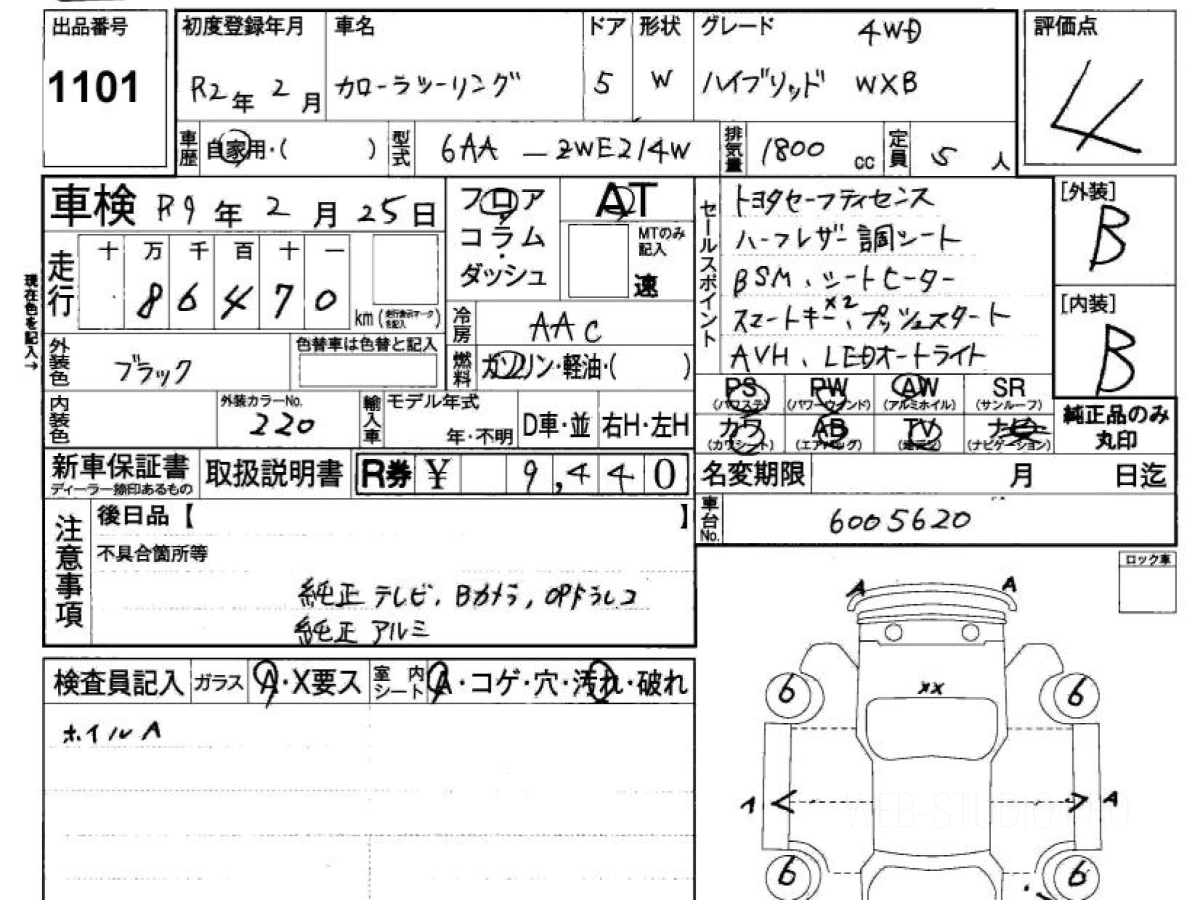 出品番号
1101
初度登録年月
R2年 2月
車名
カローラツーリング
ドア
5
形状
W
グレード 4WD
ハイブリッド WXB
評価点
4
車歴 自家用・( )
型式 6AA-ZWE214W
排気量 1800 cc
定員 5 人
車検 R9年 2月 25日
走行
十 万 千 百 十 一
8 6 4 7 0 km (走行表示マークを記入)
現在色を記入→
フロア
コラム
ダッシュ
AT
MTのみ記入
速
セールスポイント
トヨタセーフティセンス
ハーフレザー調シート
BSM、シートヒーター
スマートキー×2、プッシュスタート
AVH、LEDオートライト
[外装]
B
[内装]
B
冷房 AAC
燃料 ガソリン・軽油・( )
外装色 ブラック
色替車は色替と記入
内装色
外装カラーNo.
220
輸入車
モデル年式
年・不明
D車・並
右H・左H
PS (パワステ)
PW (パワーウィンド)
AW (アルミホイル)
SR (サンルーフ)
カワ (カワシート)
AB (エアバッグ)
TV
ナビ (ナビゲーション)
純正品のみ
丸印
新車保証書
ディーラー捺印あるもの
取扱説明書
R券 ¥ 9,440
名変期限 月 日迄
車台No. 6005620
注意事項
後日品【 】
不具合箇所等
純正テレビ、Bカメラ、OPドラレコ
純正アルミ
ロック車
検査員記入
ガラス A・X要ス
室内シート A・コゲ・穴・汚れ・破れ
ホイルA
A A
6 6
××
1 A
6 6
WEB-STUDIO.PRO